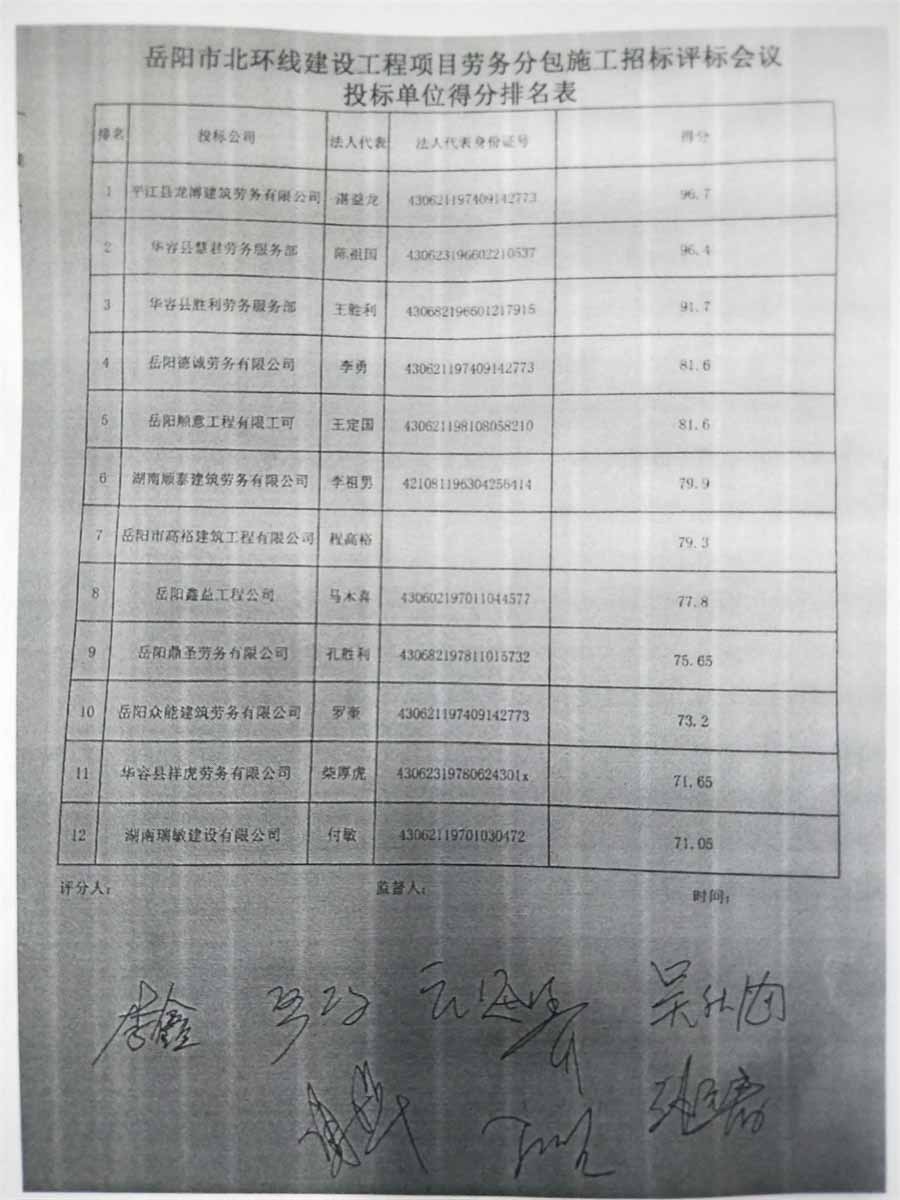 岳阳市北环线建设工程项目劳务分包施工招标评标会议
投标单位得分排名表
排名 投标公司 法人代表 法人代表身份证号 得分
1 平江县龙博建筑劳务有限公司 湛益龙 430621197409142773 96.7
2 华容县慧君劳务服务部 陈祖国 430623196602210537 96.4
3 华容县胜利劳务服务部 王胜利 430682196601217915 91.7
4 岳阳德诚劳务有限公司 李勇 430621197409142773 81.6
5 岳阳顺意工程有限工可 王定国 430621198108058210 81.6
6 湖南顺泰建筑劳务有限公司 李祖男 421081196304256414 79.9
7 岳阳市高裕建筑工程有限公司 程高裕 79.3
8 岳阳鑫益工程公司 马木喜 430602197011044577 77.8
9 岳阳鼎圣劳务有限公司 孔胜利 430682197811015732 75.65
10 岳阳众能建筑劳务有限公司 罗 430621197409142773 73.2
11 华容县祥虎劳务有限公司 柴厚虎 43062319780624301x 71.65
12 湖南瑞敏建设有限公司 付敏 43062119701030472 71.05
评分人： 监督人： 时间：
李鑫